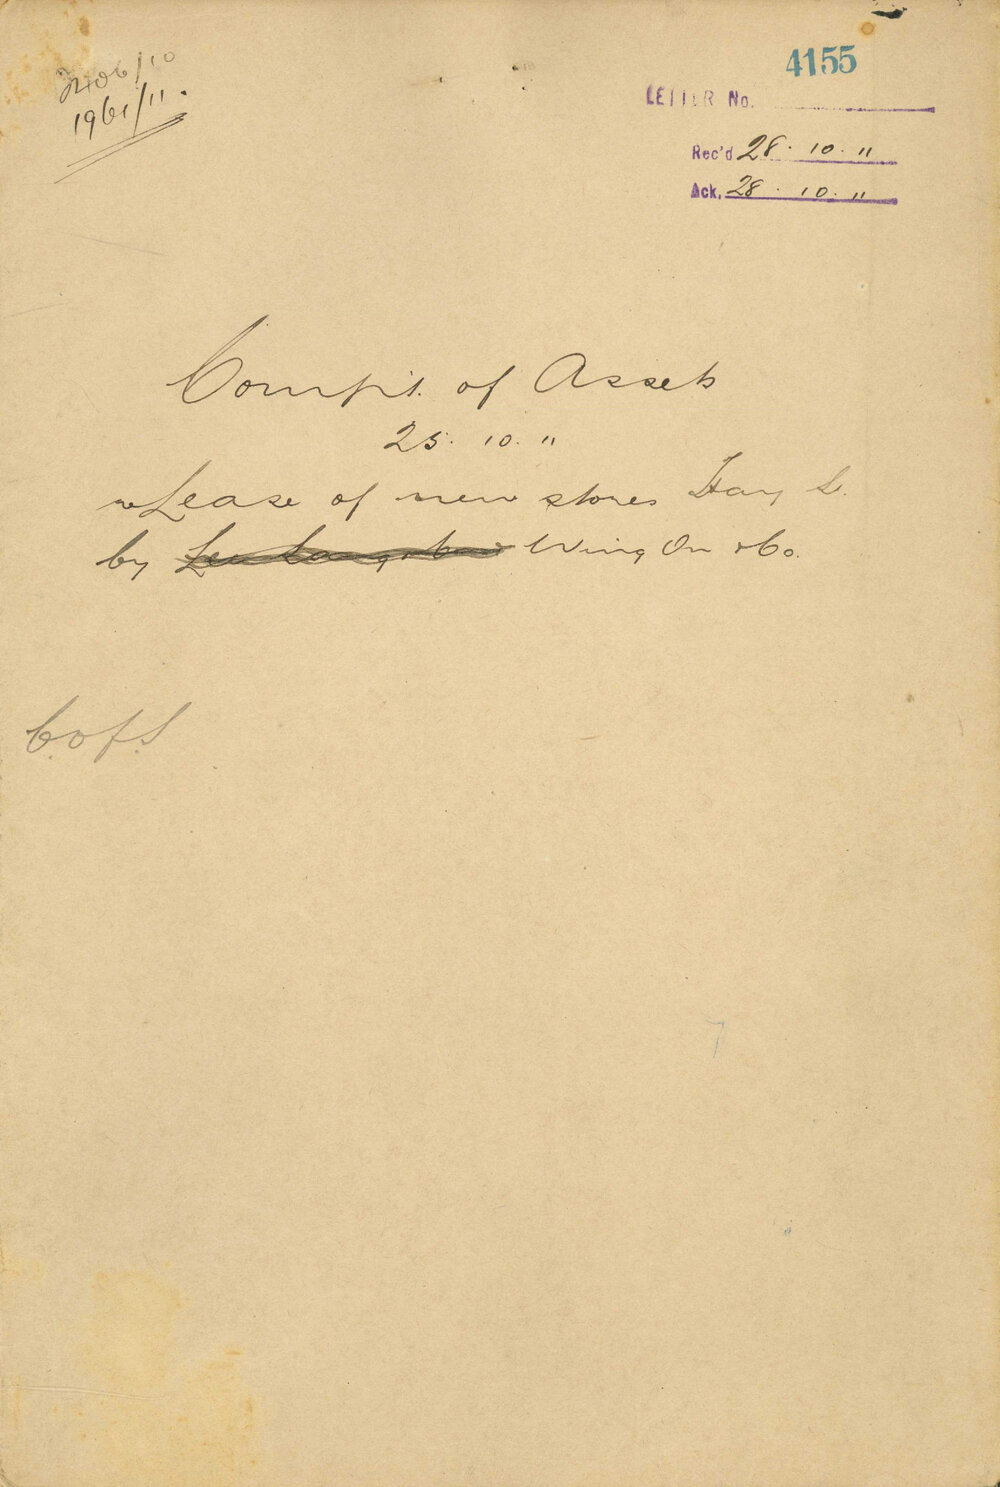 2406/10
1961/11.
4155
LETTER No.
Rec'd 28. 10. 11
Ack. 28. 10. 11
Compt. of Assets
25. 10. 11
re Lease of new stores Hay St.
by Wing On & Co.
C of S